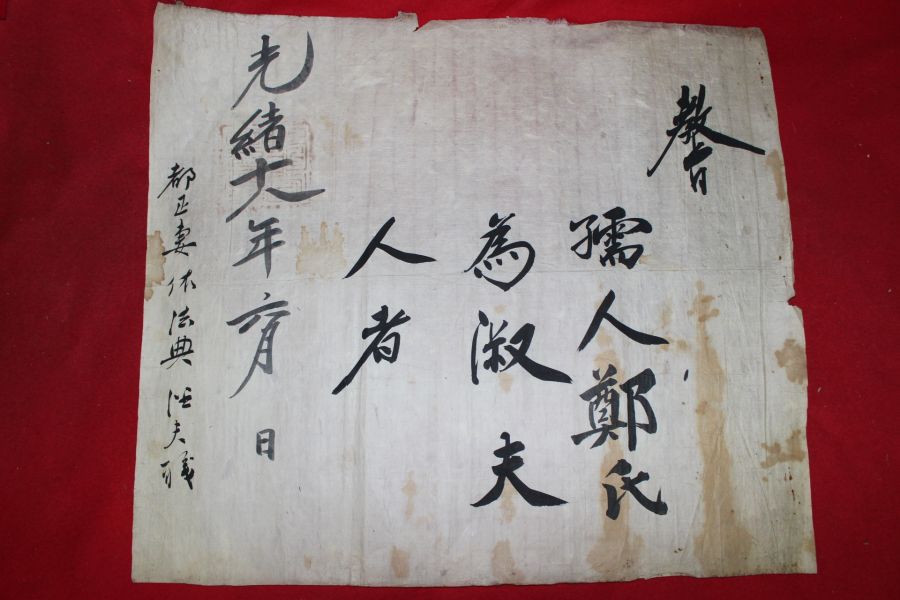 敎旨
孺人鄭氏
為淑夫
人者
光緖十八年六月 日
都正妻依法典從夫職